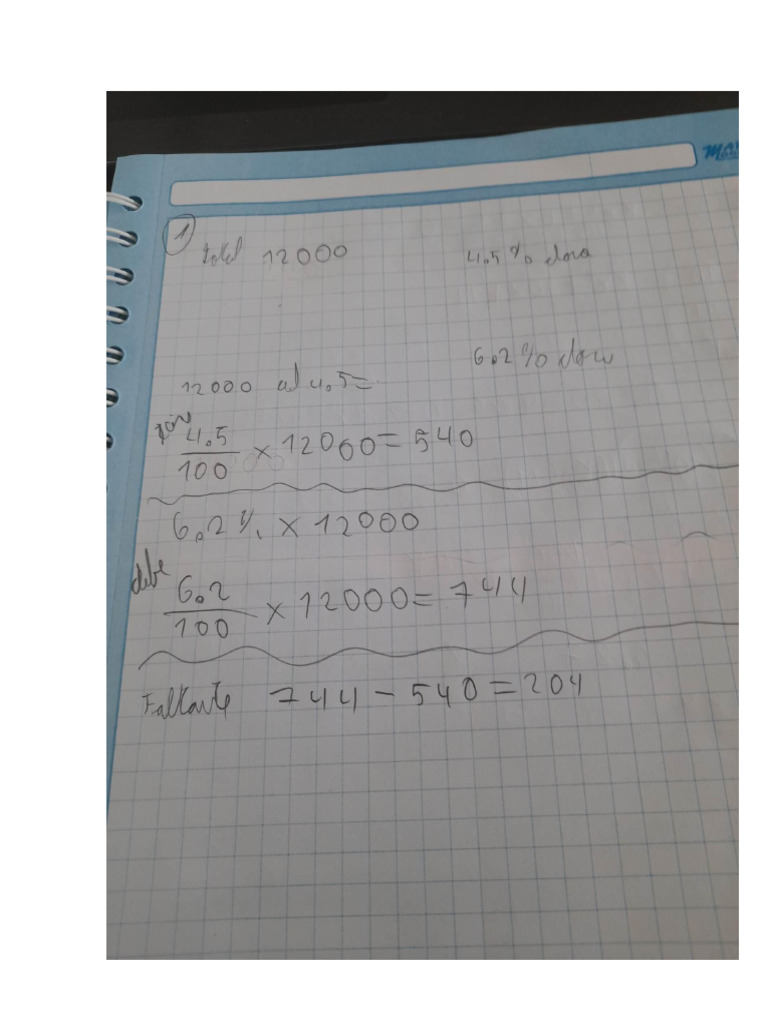 1
total 12000 4.5 %
6.2 %
12000 al 4.5 =
4.5
100 × 12000 = 540
6.2 % × 12000
debe
6.2
100 × 12000 = 744
Faltante 744 - 540 = 204